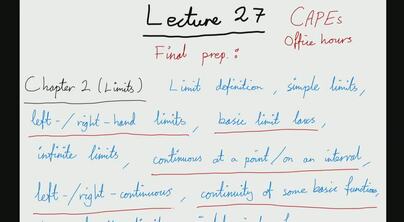 Lecture 27
CAPEs
Office hours
Final prep.:
Chapter 2 (Limits) Limit definition, simple limits,
left-/right-hand limits, basic limit laws,
infinite limits, continuous at a point/on an interval,
left-/right-continuous, continuity of some basic functions,